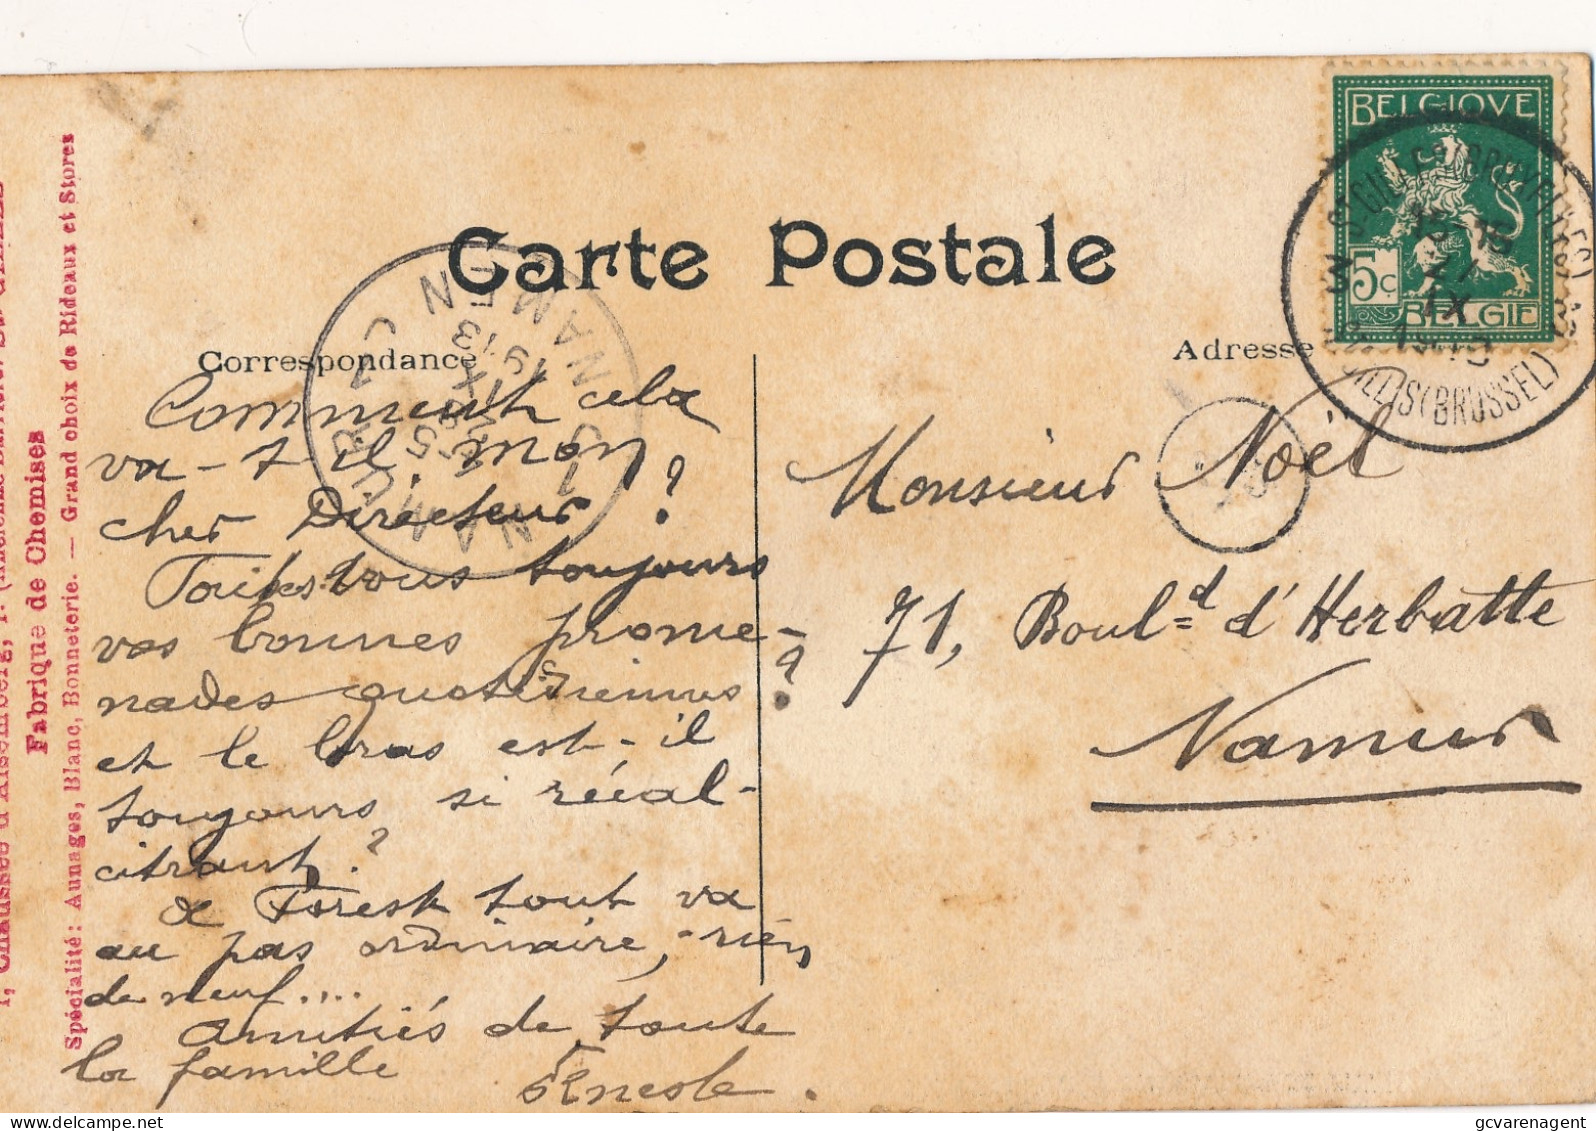 Carte Postale
Correspondance
Adresse
Comment cela
va-t-il mon
cher Directeur ?
Faites-vous toujours
vos bonnes prome-
nades quotidiennes ?
et le bras est-il
toujours si récal-
citrant ?
A Forest tout va
au pas ordinaire, rien
de neuf....
Amitiés de toute
la famille
Ernest.
Monsieur Noël
71, Boul=d d'Herbatte
Namur
BELGIQUE
5c
BELGIE
(BRUSSEL)
NAMUR 1
NAMEN 1
Fabrique de Chemises
Spécialité: Aunages, Blanc, Bonneterie. — Grand choix de Rideaux et Stores
gcvarenagent